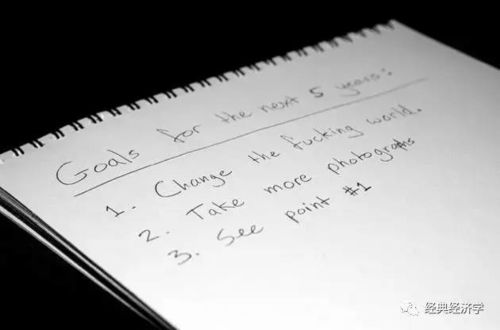 Goals for the next 5 years:
1. Change the fucking world.
2. Take more photographs
3. See point #1
经典经济学